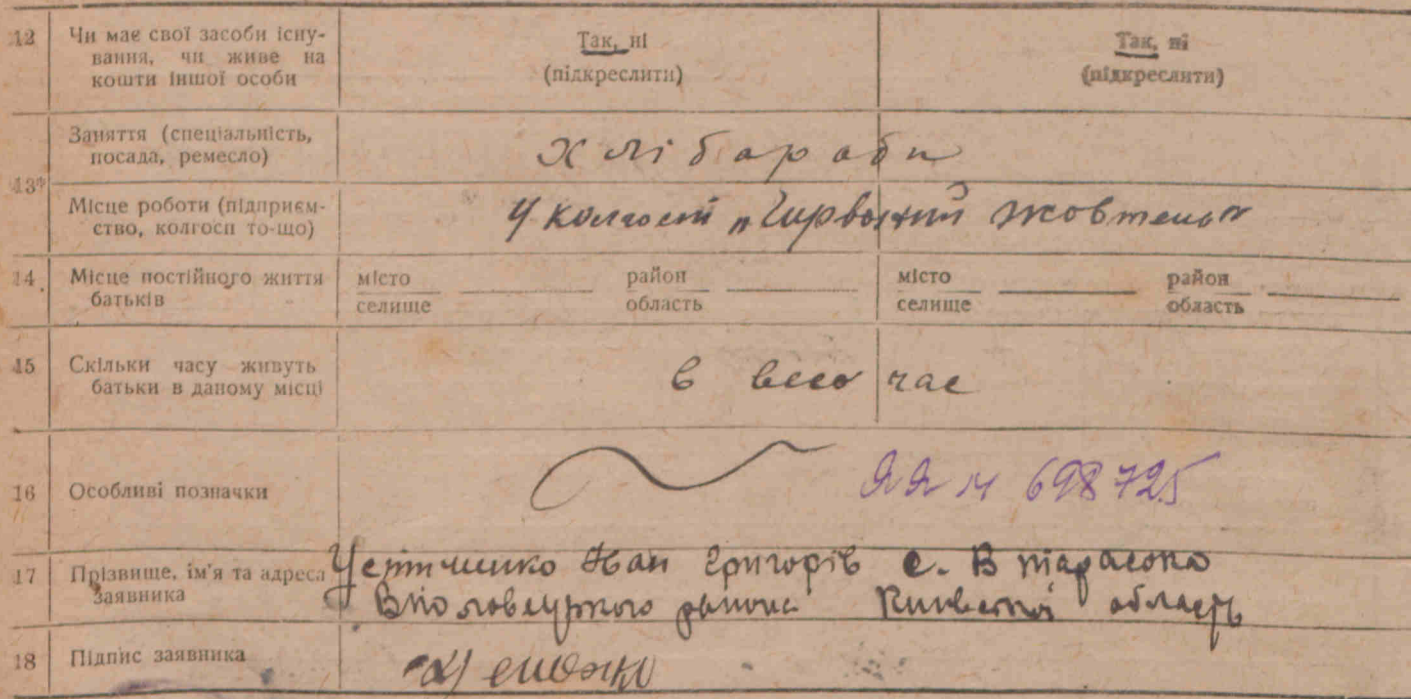 12 Чи має свої засоби існу-
вання, чи живе на
кошти іншої особи
Так, ні
(підкреслити)
Так, ні
(підкреслити)
Заняття (спеціальність,
посада, ремесло)
Хлібароби
13*
Місце роботи (підприєм-
ство, колгосп то-що)
У колгоспі „Чирвоний жовтень"
14. Місце постійного життя
батьків
місто
селище
район
область
місто
селище
район
область
15 Скільки часу живуть
батьки в даному місці
в весь час
16 Особливі позначки
ЯЯ № 698725
17 Прізвище, ім'я та адреса
заявника
Іван Григорів с. В тарасовка
района Київської область
18 Підпис заявника